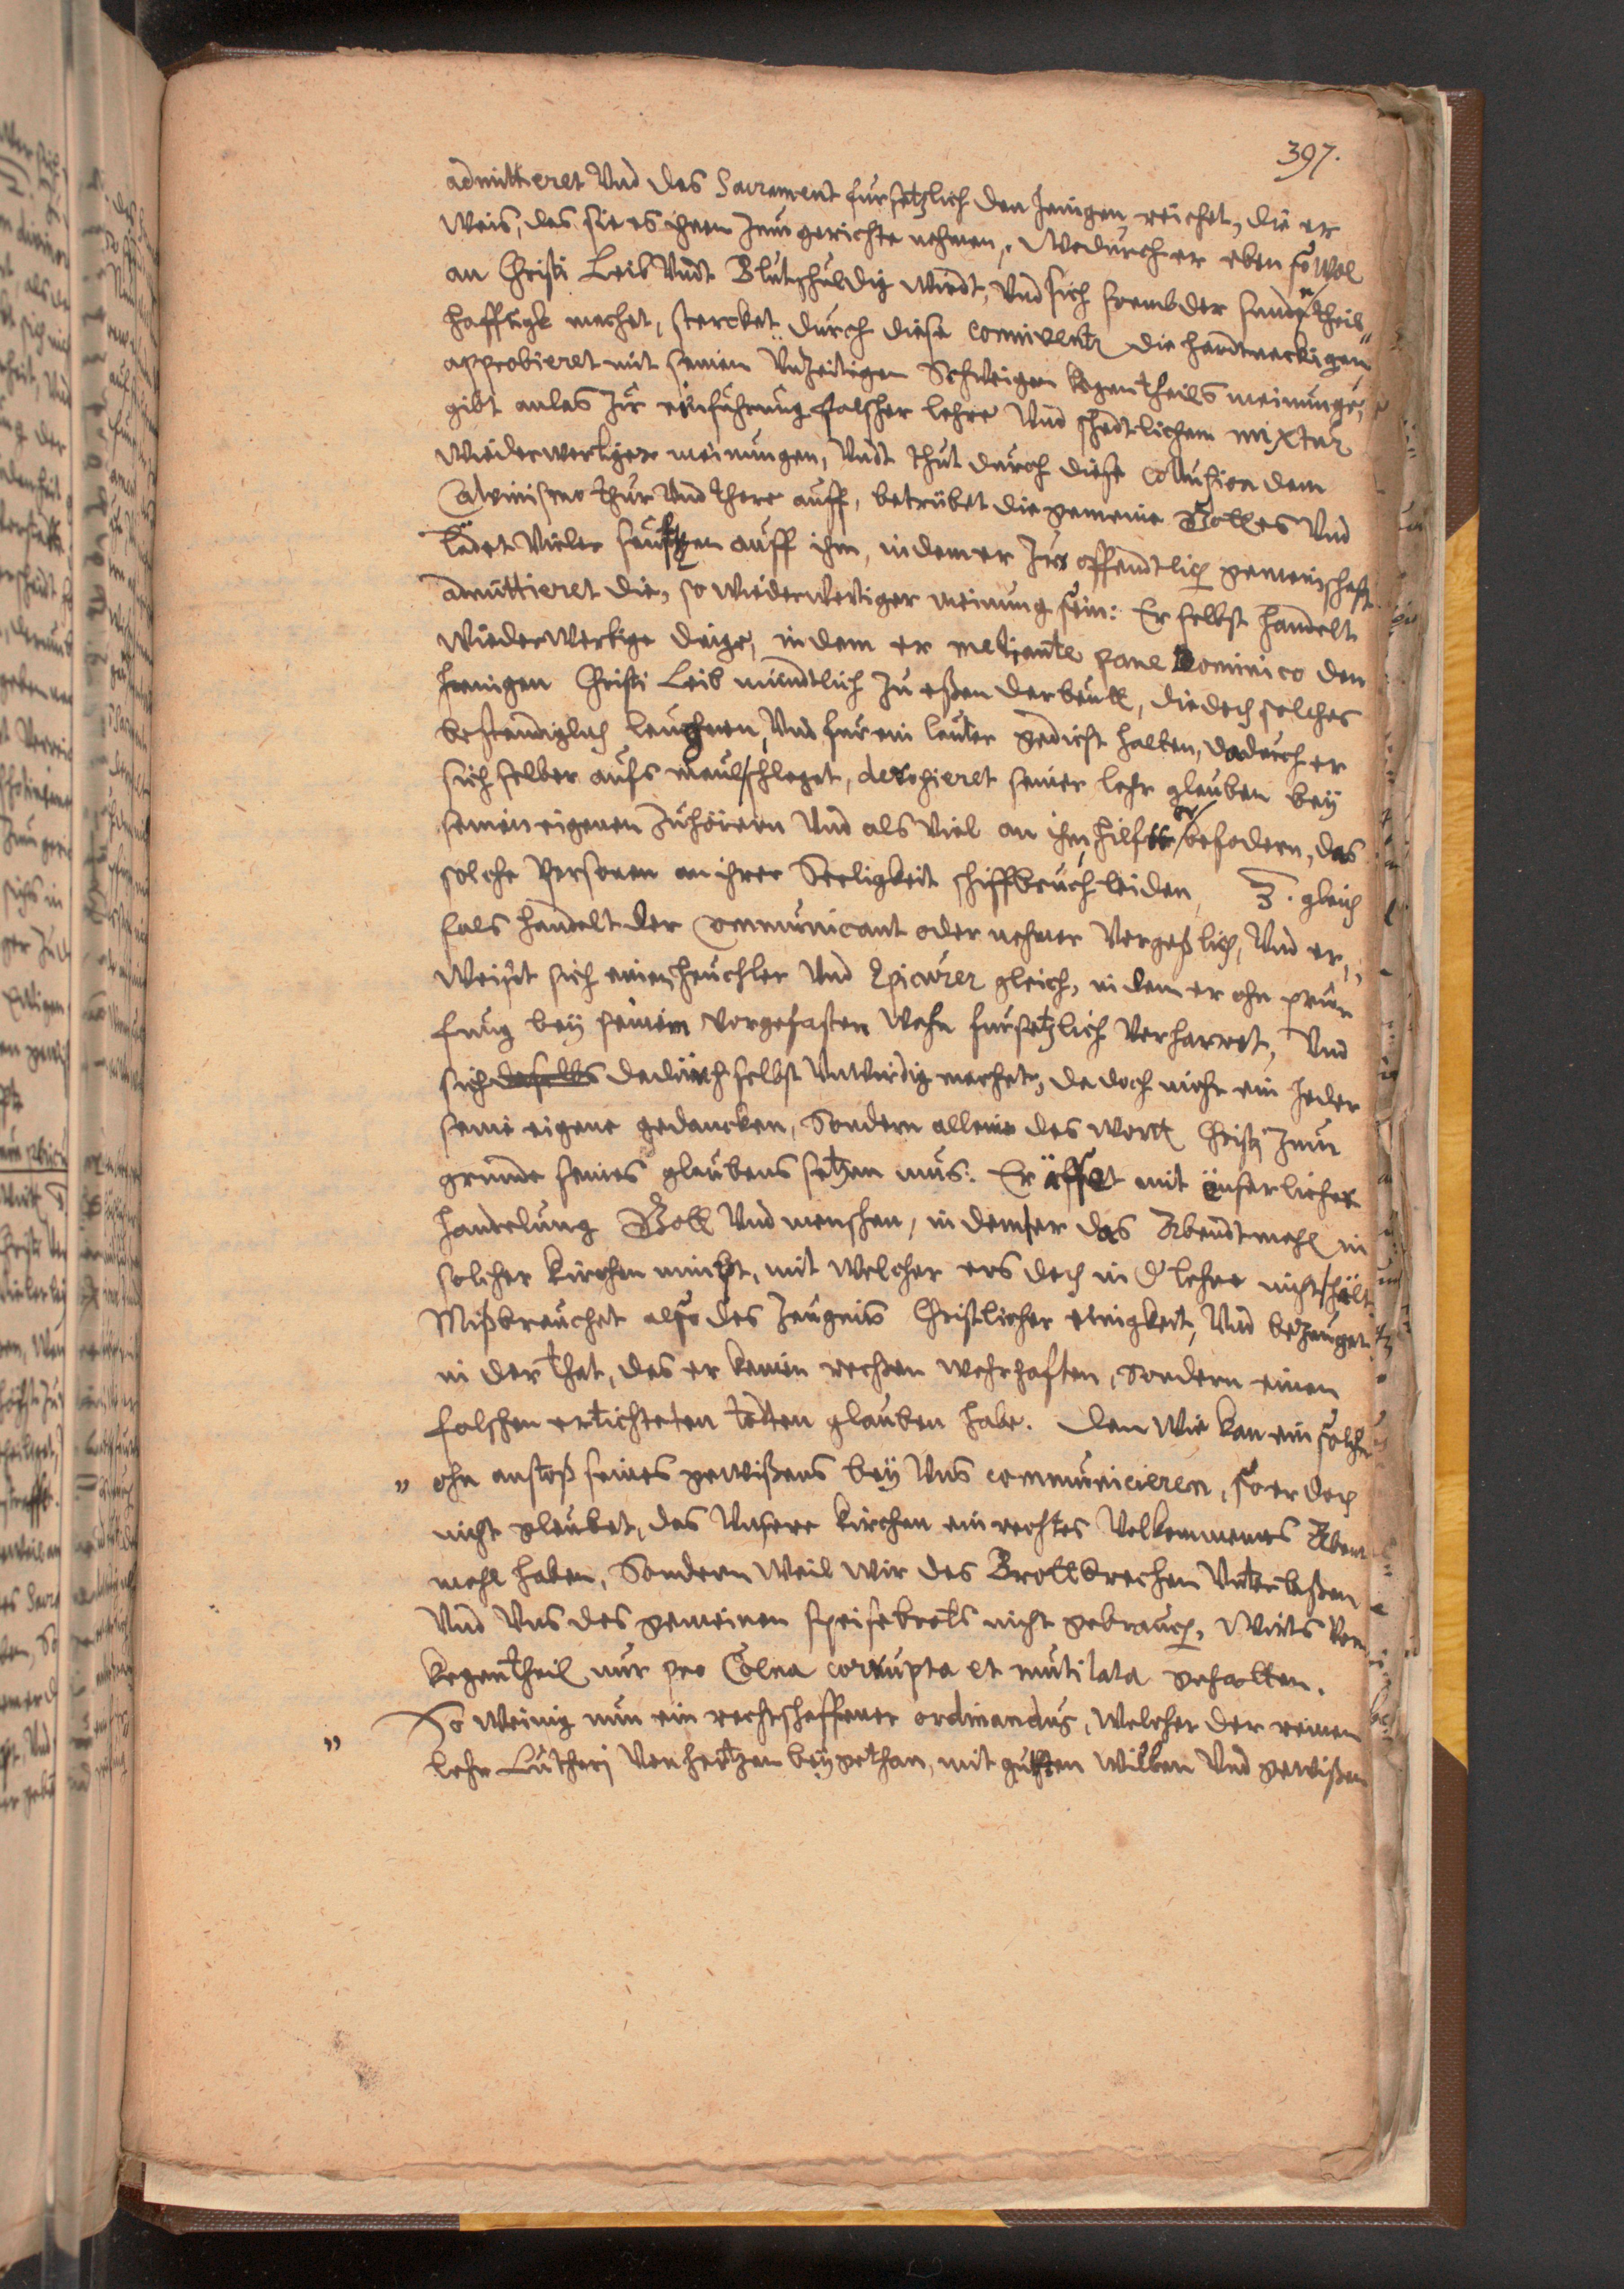 397.
admittieret Und das Sacrament fursetzlich den Jenigen reichet, die er
Weis, das sie es ihnen Zum gerichte nehmen, Wodurch er eben so Wol
an Christi Leib Undt Blut schuldig Wirdt, Und sich frembder sunden theil
hafftigk machet, stercket durch diese conniventz die hardtneckigen
approbieret mit seinem Unzeitigen Schweigen kegentheils meinunge,
gibt anlas Zur einfuhrung falscher lehre Und schedtlichem mixtur
Wiederwertiger meinungen, Undt thut durch diese collusion dem
Calvinismo thur Und thore auff, betrübet die gemeine Gottes Und
ladet Vieler seufftzen auff ihn, in dem er Zur offendtlich gemeinschafft
admittieret die, so Wiederwertiger meinung sein: Er selbst handelt
Wiederwertige dinge, in dem er mediante pane Dominico den
Jenigen Christi Leib mündtlich Zu eßen darbeutt, die doch solches
bestendiglich leugnen, Und fur ein lauter gedicht halten, dadurch er
sich selber aufs maul schleget, derogieret seiner lehr glauben bey
seinen eigenen Zuhörern Und als Viel an ihm hilfft er befodern, das
solche Personen an ihrer Seeligkeit schiffbruch leiden, 3. gleich
fals handelt der communicant oder nehmer Vergeßlich, Und er,,
Weiset sich einem heuchler Und Epicurer gleich, in dem er ohn pruf
fung bey seinem Vorgefasten Wahn fursetzlich Verharret, Und
sich daselbs dadurch selbst Unwirdig machet, da doch nicht ein Jeder
seine eigene gedancken, Sondern alleine das wortt Christi Zum
grunde seines glaubens setzen mus: Er äffet mit eüserlicher
handelung Gott Und menschen, in dem er das Abendtmahl in
solcher kirchen nimbt, mit Welcher ers doch in d lehre nicht helt
Mißbrauchet also das Zeugnis Christlicher einigkeit, Und beZeuget
in der that, das er keinen rechten wahrhafften, Sondern einen
falschen ertichteten todten glauben habe. Den Wie kan ein solcher
" ohn anstoß seines gewißens bey Uns communicieren, so er doch
nicht gleubet, das Unsere kirchen ein rechtes Volkommenes Abent
mahl haben, Sondern Weil wir das Brottbrechen Unterlaßen
Und Uns des gemeinen speisebrots nicht gebrauch, Wirts Vom
kegentheil nur pro Coena corrupta et mutilata gehalten.
" So Wenig nun ein rechtschaffener ordinandus, Welcher der reinen
lehr Lutheri Von hertzen beygethan, mit gutten Willen Und gewißen